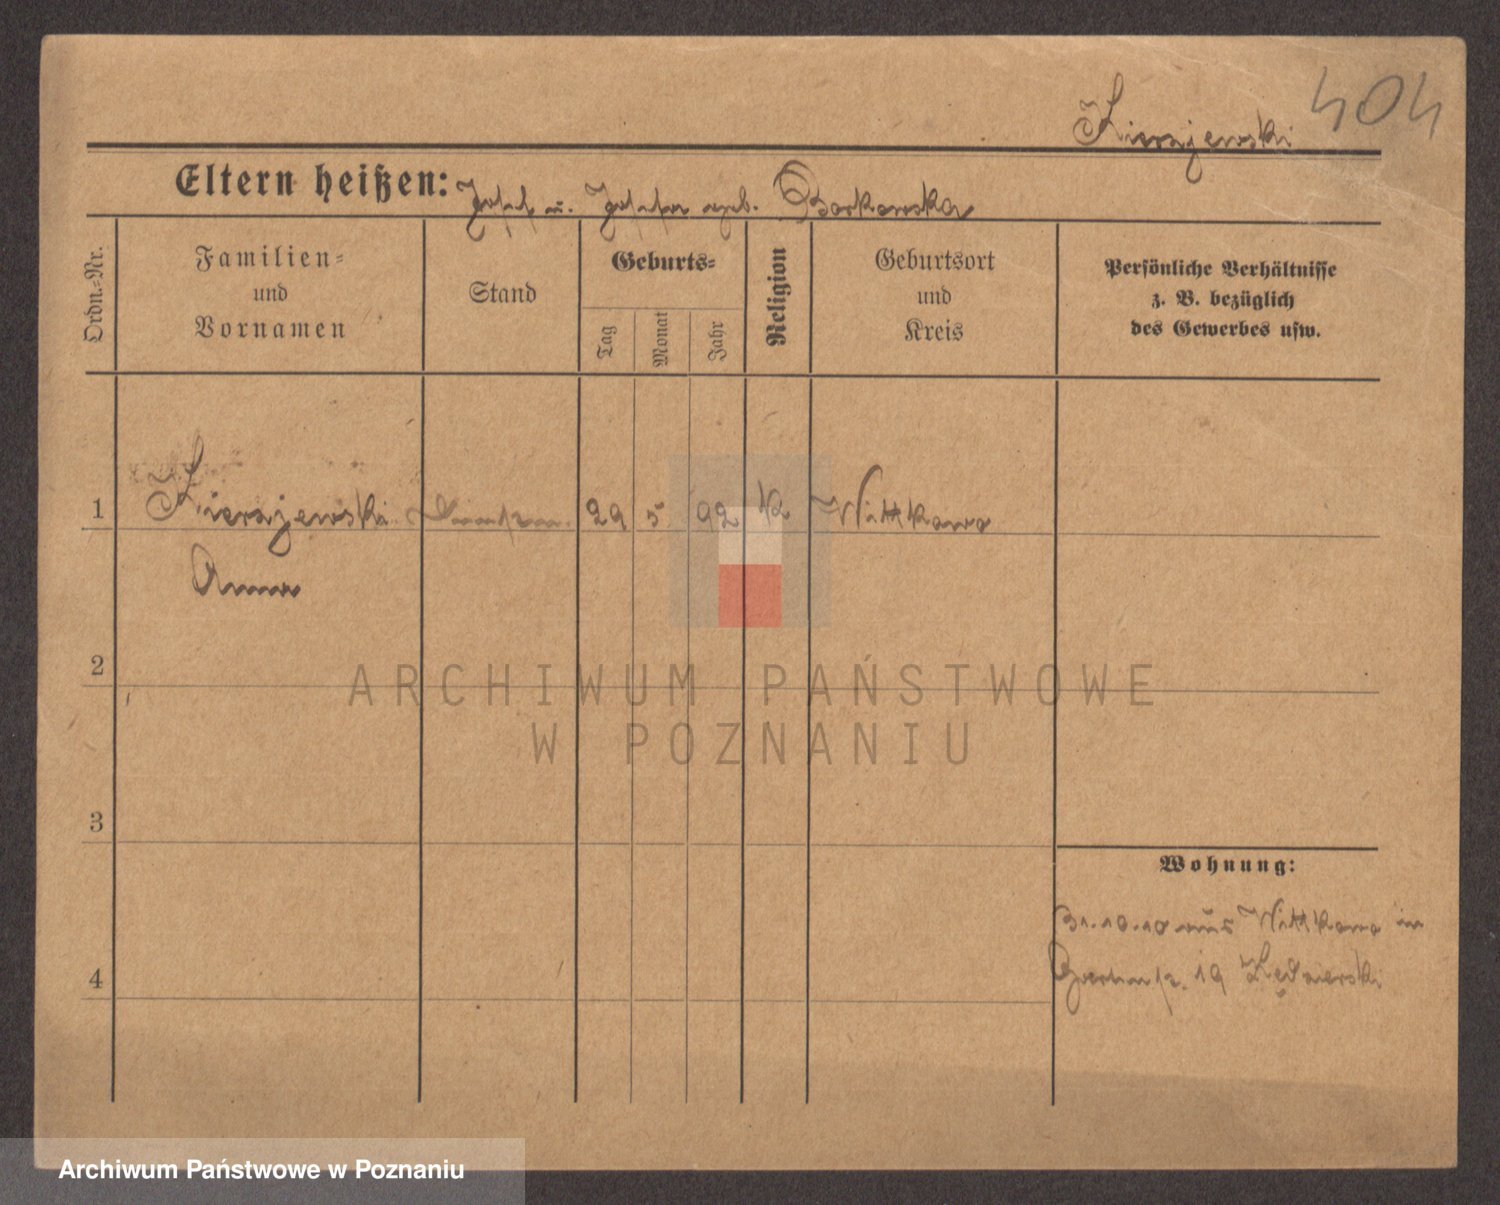 404
Kierajewski
Eltern heißen: Josef u. Josefa geb. Borkowska
Ordn.-Nr.
Familien-
und
Vornamen
Stand
Geburts-
Tag
Monat
Jahr
Religion
Geburtsort
und
Kreis
Persönliche Verhältnisse
z. B. bezüglich
des Gewerbes usw.
1 Kierajewski 29 5 92 K Wittkowo
Anna
2
ARCHIWUM PAŃSTWOWE
W POZNANIU
3
Wohnung:
31.10.10 aus Wittkowo in
19
4
Archiwum Państwowe w Poznaniu